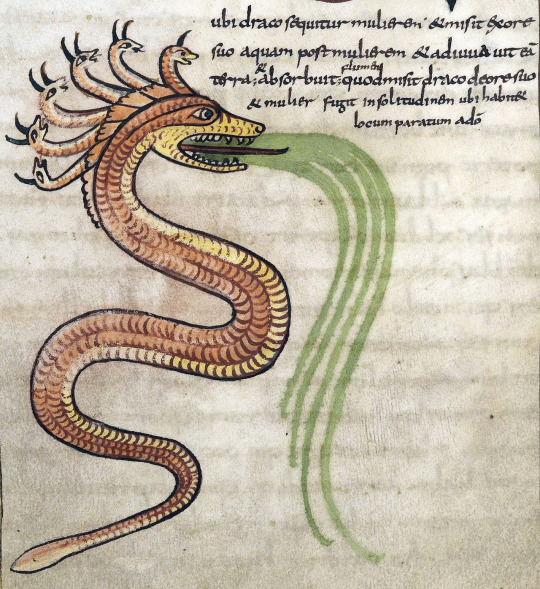 ubi draco sequitur mulierem & misit de ore
suo aquam post mulierem & adiuuauit eā
& flumen
terra: absorbuit quod misit draco de ore suo
& mulier fugit in solitudinem ubi hab&
locum paratum adō